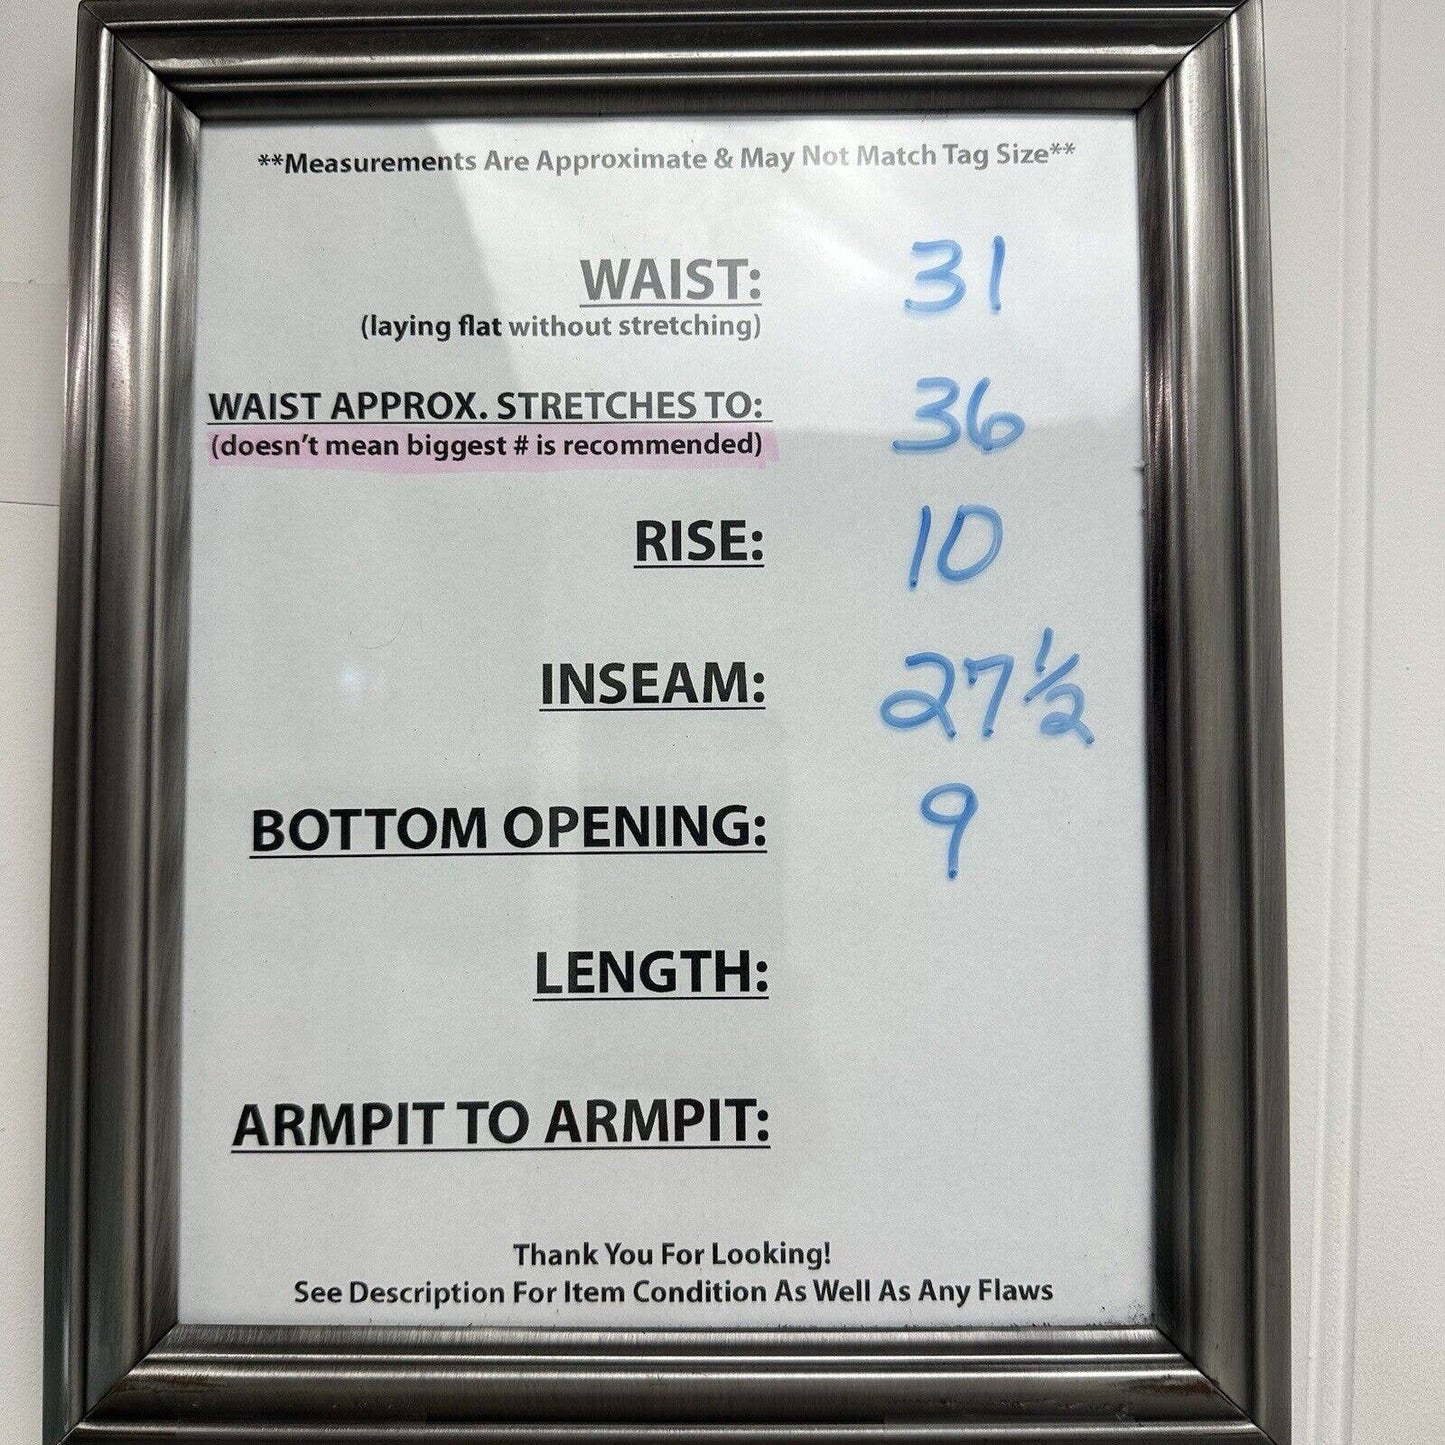 **Measurements Are Approximate & May Not Match Tag Size**
WAIST: 31
(laying flat without stretching)
WAIST APPROX. STRETCHES TO: 36
(doesn't mean biggest # is recommended)
RISE: 10
INSEAM: 27 1/2
BOTTOM OPENING: 9
LENGTH:
ARMPIT TO ARMPIT:
Thank You For Looking!
See Description For Item Condition As Well As Any Flaws